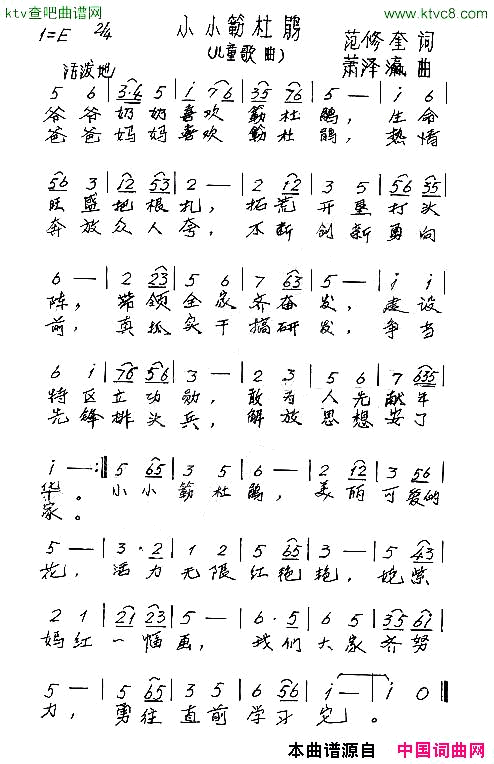 ktv查吧曲谱网
www.ktvc8.com
1=E 2/4 小小簕杜鹃 范修奎 词
(儿童歌曲) 萧泽瀛 曲
活泼地
5 6 | 3·4 5 | i 76 | 35 76 | 5 — | i 6 |
爷爷奶奶喜欢簕杜鹃，生命
爸爸妈妈喜欢簕杜鹃，热情
56 3 | 12 53 | 2 — | 2 12 | 3 5 | 56 35 |
旺盛把根扎，拓荒开垦打头
奔放众人夸，不断创新勇向
6 — | 2 23 | 5 6 | 7 63 | 5 — | i i |
阵，带领全家齐奋发，建设
前，真抓实干搞研发，争当
6 i | 76 56 | 3 — | 2 2 3 | 5 6 | 7 635 |
特区立功勋，敢为人先献年
先锋排头兵，解放思想安了
i — :| 5 65 | 3 5 | 6 — | 2 12 | 3 56 |
华。小小簕杜鹃，美丽可爱的
家。
5 — | 3· 2 | 1 2 | 5 65 | 3 — | 5 43 |
花，活力无限红艳艳，姹紫
2 1 | 21 23 | 5 — | 6· 5 | 6 5 | 35 61 |
嫣红一幅画，我们大家齐努
5 — | 5 65 | 3 5 | 6 56 | i — | i 0 ‖
力，勇往直前学习它。
本曲谱源自 中国词曲网